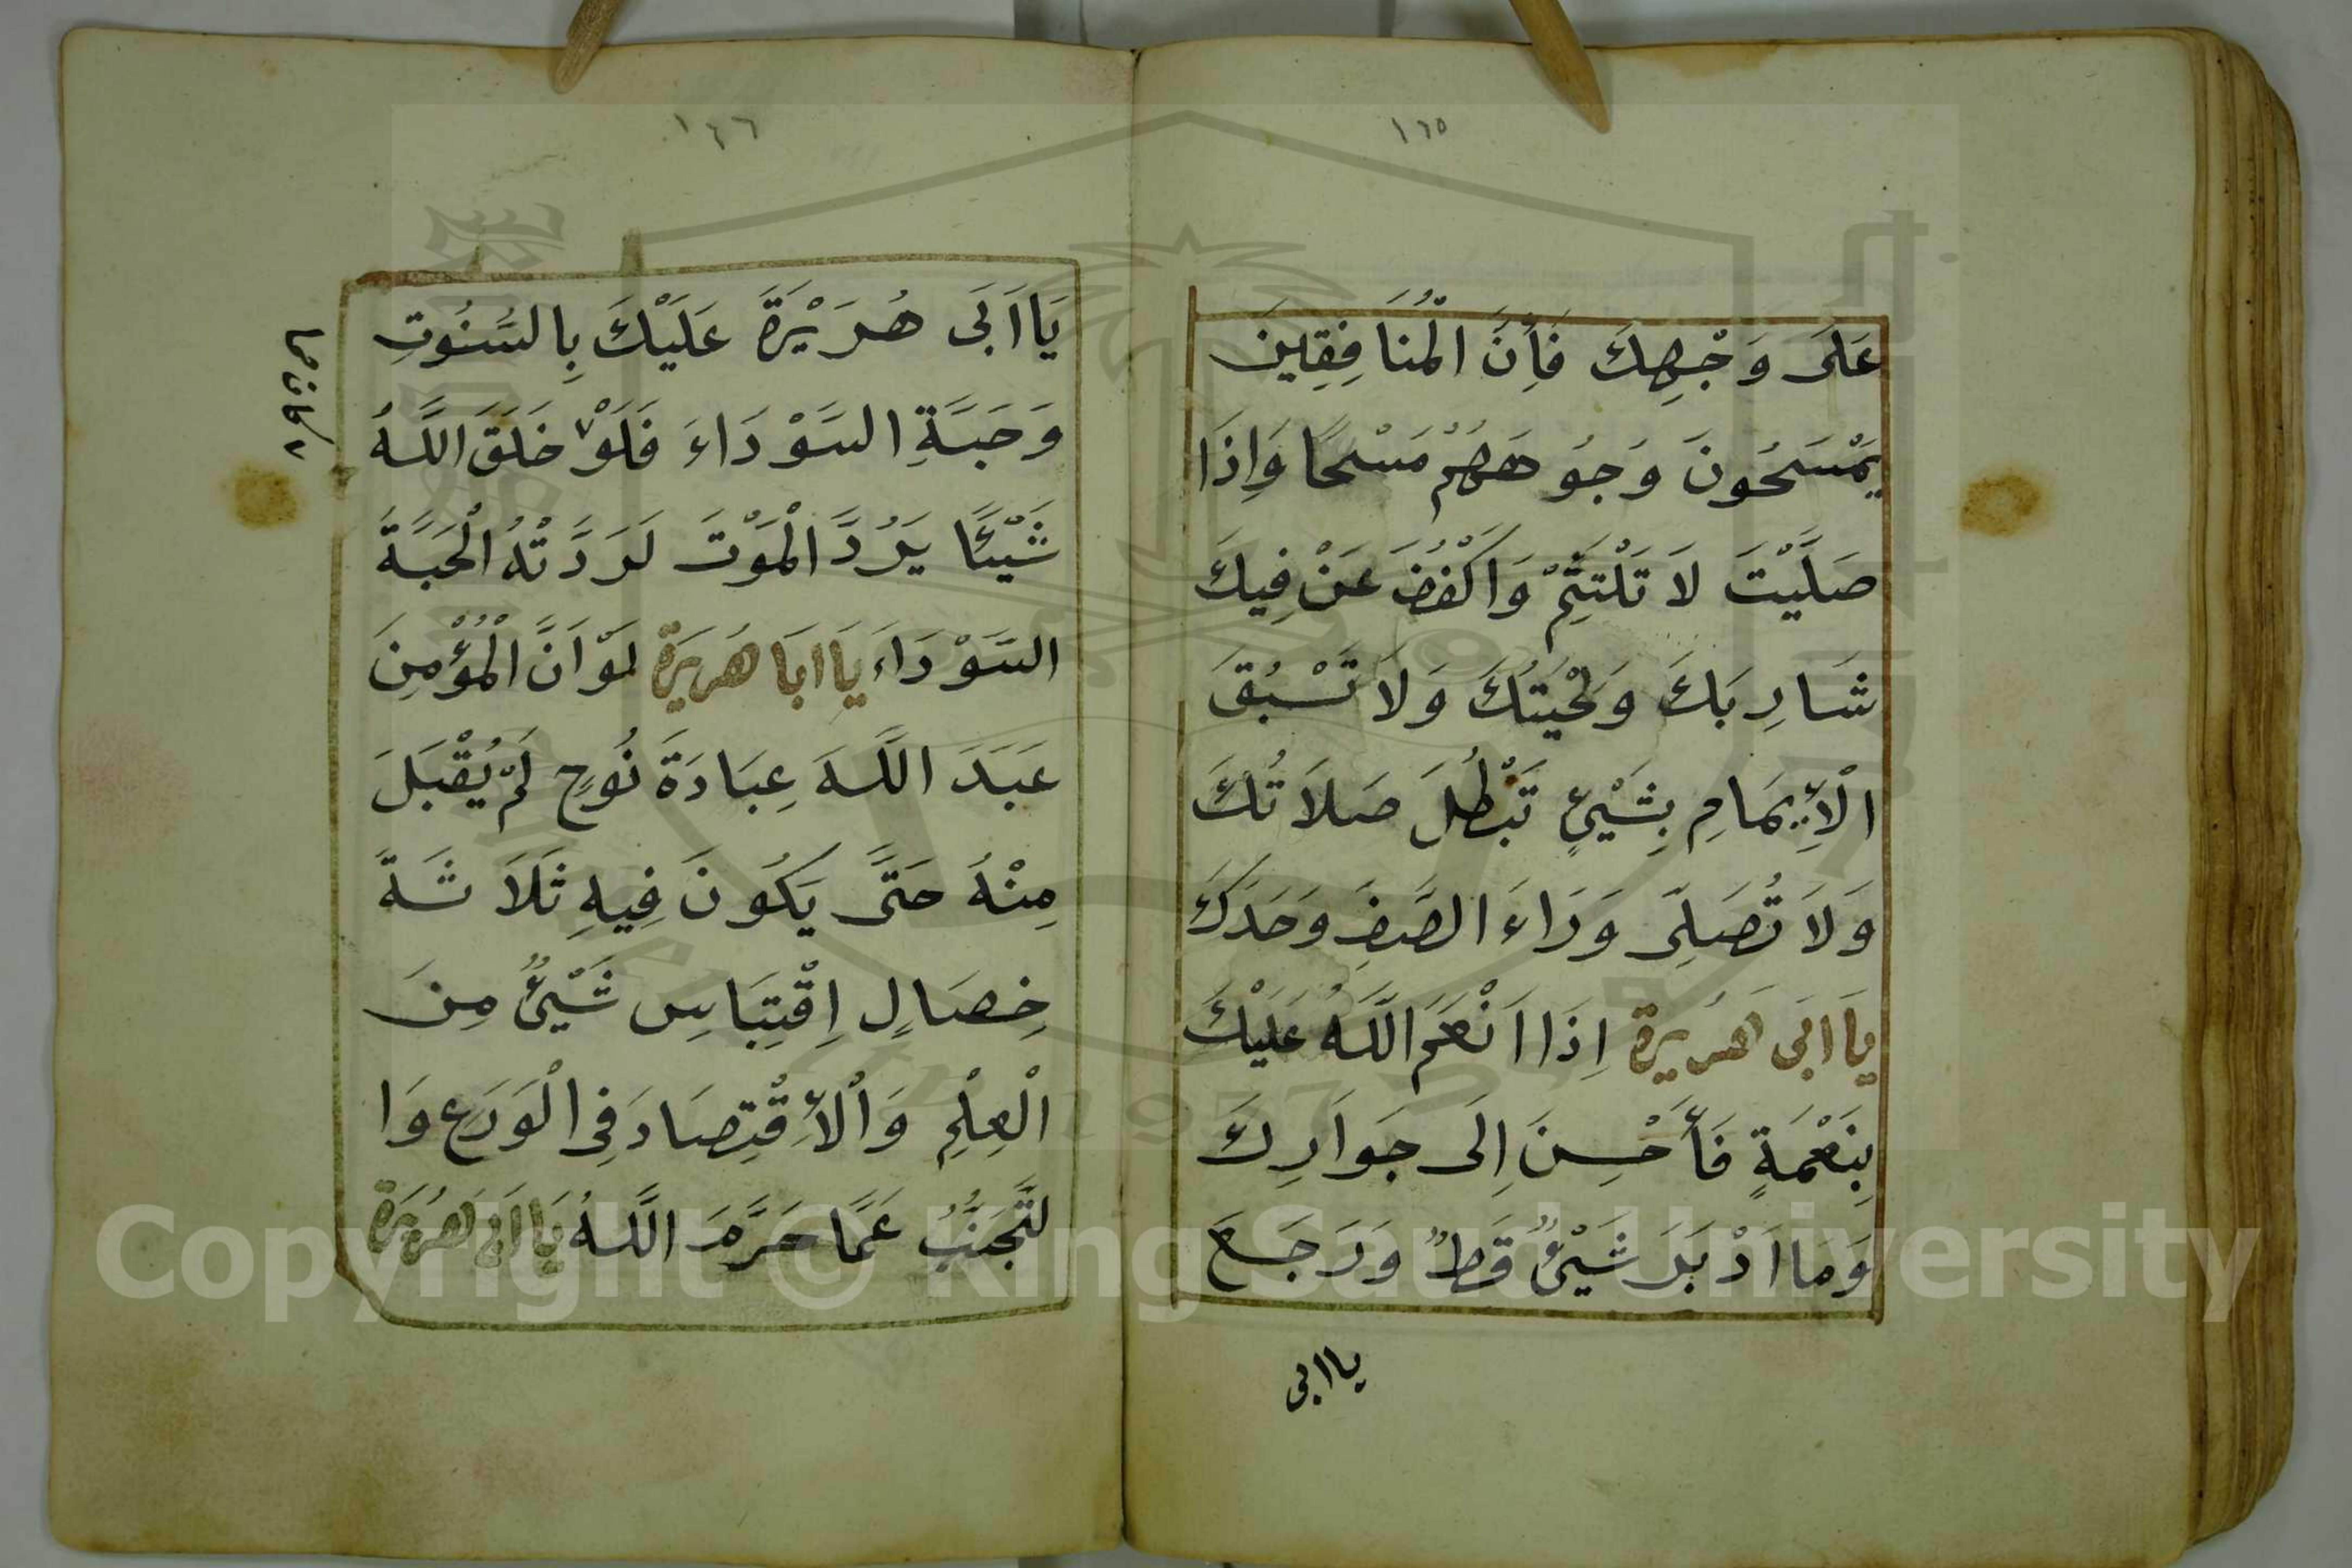 ١٦٥
عَلَى وَجْهِكَ فَأِنَّ الْمُنَافِقِينَ
يَمْسَحُونَ وُجُوهَهُمْ مَسْحًا وَاِذَا
صَلَّيْتَ لَا تَلْتَثِمْ وَاكْفُفْ عَنْ فِيكَ
شَارِبَكَ وَلِحْيَتَكَ وَلَا تَسْبُقَ
الْأِيمَامِ بِشَيْئٍ تَبْطُلَ صَلَاتُكَ
وَلَا تُصَلِّى وَرَاءَ الصَّفِ وَحَدَكَ
يَا ابَى هرَيرة اِذَا اَنْعَمَ اللَّهُ عَلَيْكَ
بِنَعْمَةٍ فَأَحْسِنَ اِلَى جَوَارِكَ
وَمَا اَدْبَرَ شَيْئٌ قَطٌ وَرَجَعَ
يا ابى
١٤٦
يَا اَبَى هُرَيْرَةَ عَلَيْكَ بِالسَّنُوتِ
وَحَبَّةِ السَّوْدَاءَ فَلَوْ خَلَقَ اللَّهُ
شَيْئًا يَرُدَّ الْمَوْتَ لَرَدَّتْهُ الْحَبَّةَ
السَّوْدَاءَ يَا ابَا هُرَيرَة لَوْ اَنَّ الْمُؤْمِنَ
عَبَدَ اللَّهَ عِبَادَةَ نُوحٍ لَمْ يُقْبَلَ
مِنْهُ حَتَّى يَكُونَ فِيهِ ثَلَاثَةَ
خِصَالٍ اِقْتِبَاسِ شَيْئٌ مِنَ
الْعِلْمِ وَالْأِقْتِصَادَ فِى الْوَرَعِ وَا
لتَّجَنُّبُ عَمَّا حَرَّمَ اللَّهُ يَا اَبَى هُرَيْرَة
Copyright © King Saud University
1957